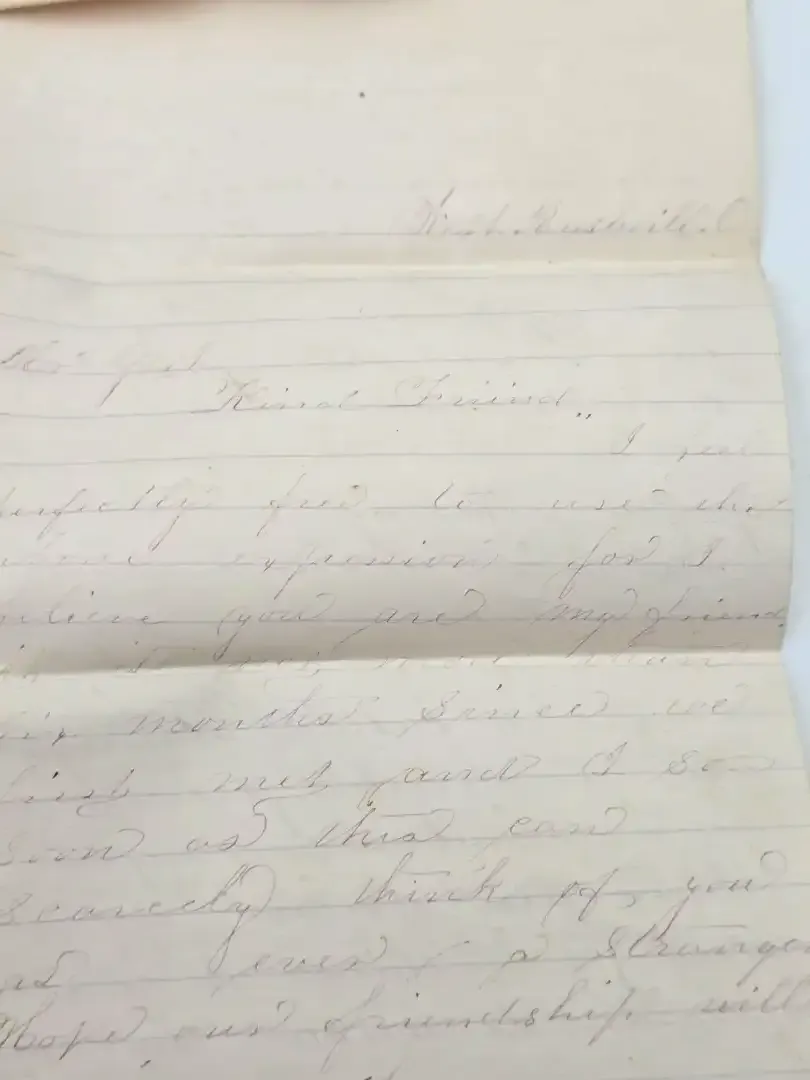 West Rushville. O
Kind Friend,,
I feel
perfectly free to use the
expression for I
believe you are my friend
it is not more than
six months since we
first met and I so
soon as this can
scarcely think of, you
as ever a stranger
Hope our friendship will